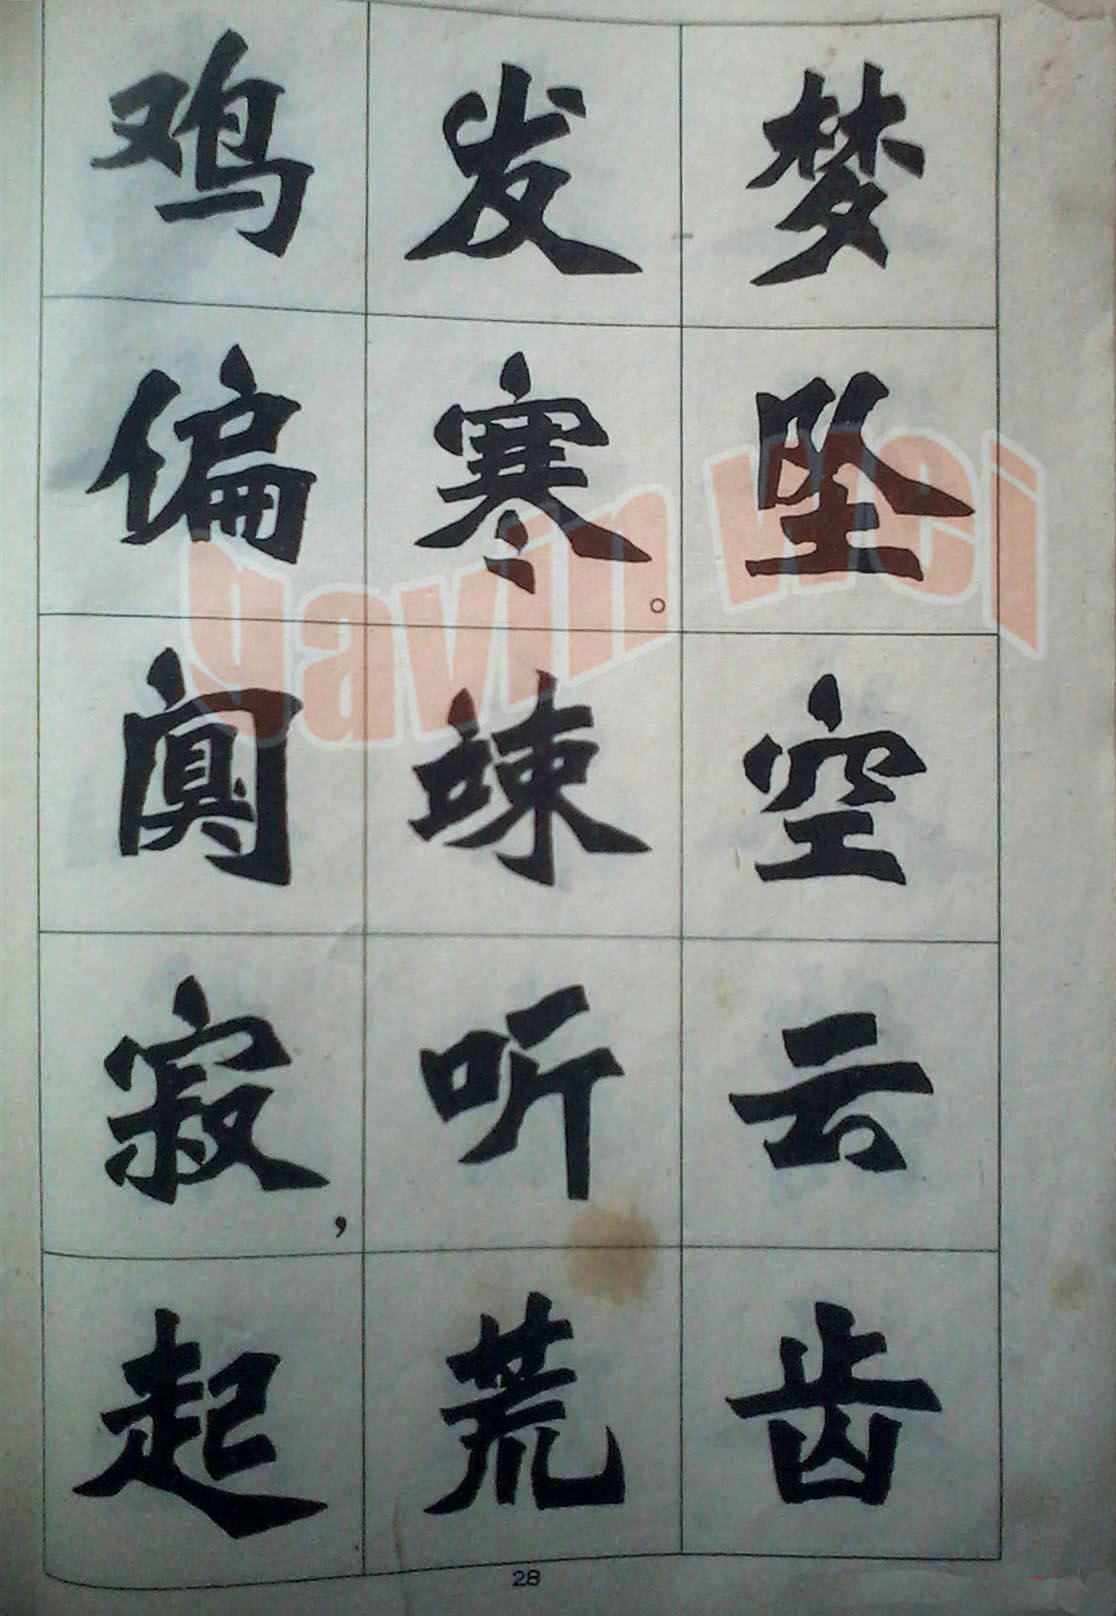 梦坠空云齿
发寒。竦听荒
鸡偏阒寂，起
28
gavin wei